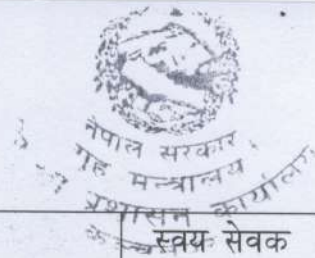 नेपाल सरकार
गृह मन्त्रालय
प्रशासन कार्यालय
स्वयं सेवक